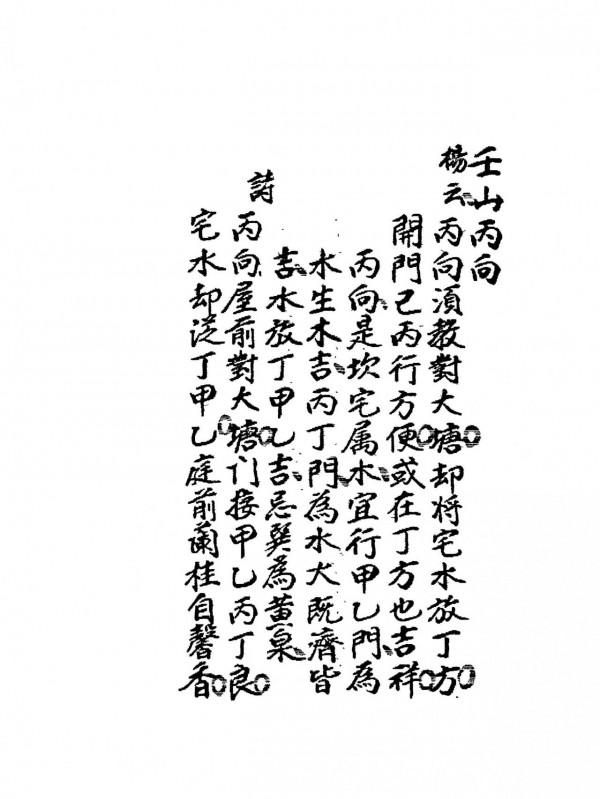 壬山丙向
楊云丙向須教對大塘却将宅水放丁方
開門己丙行方便或在丁方也吉祥
丙向是坎宅属水宜行甲乙門為
水生木吉丙丁門為水火既濟皆
吉水放丁甲乙吉忌巽為黄泉
詩丙向屋前對大塘门接甲乙丙丁良
宅水却泛丁甲乙庭前蘭桂自馨香